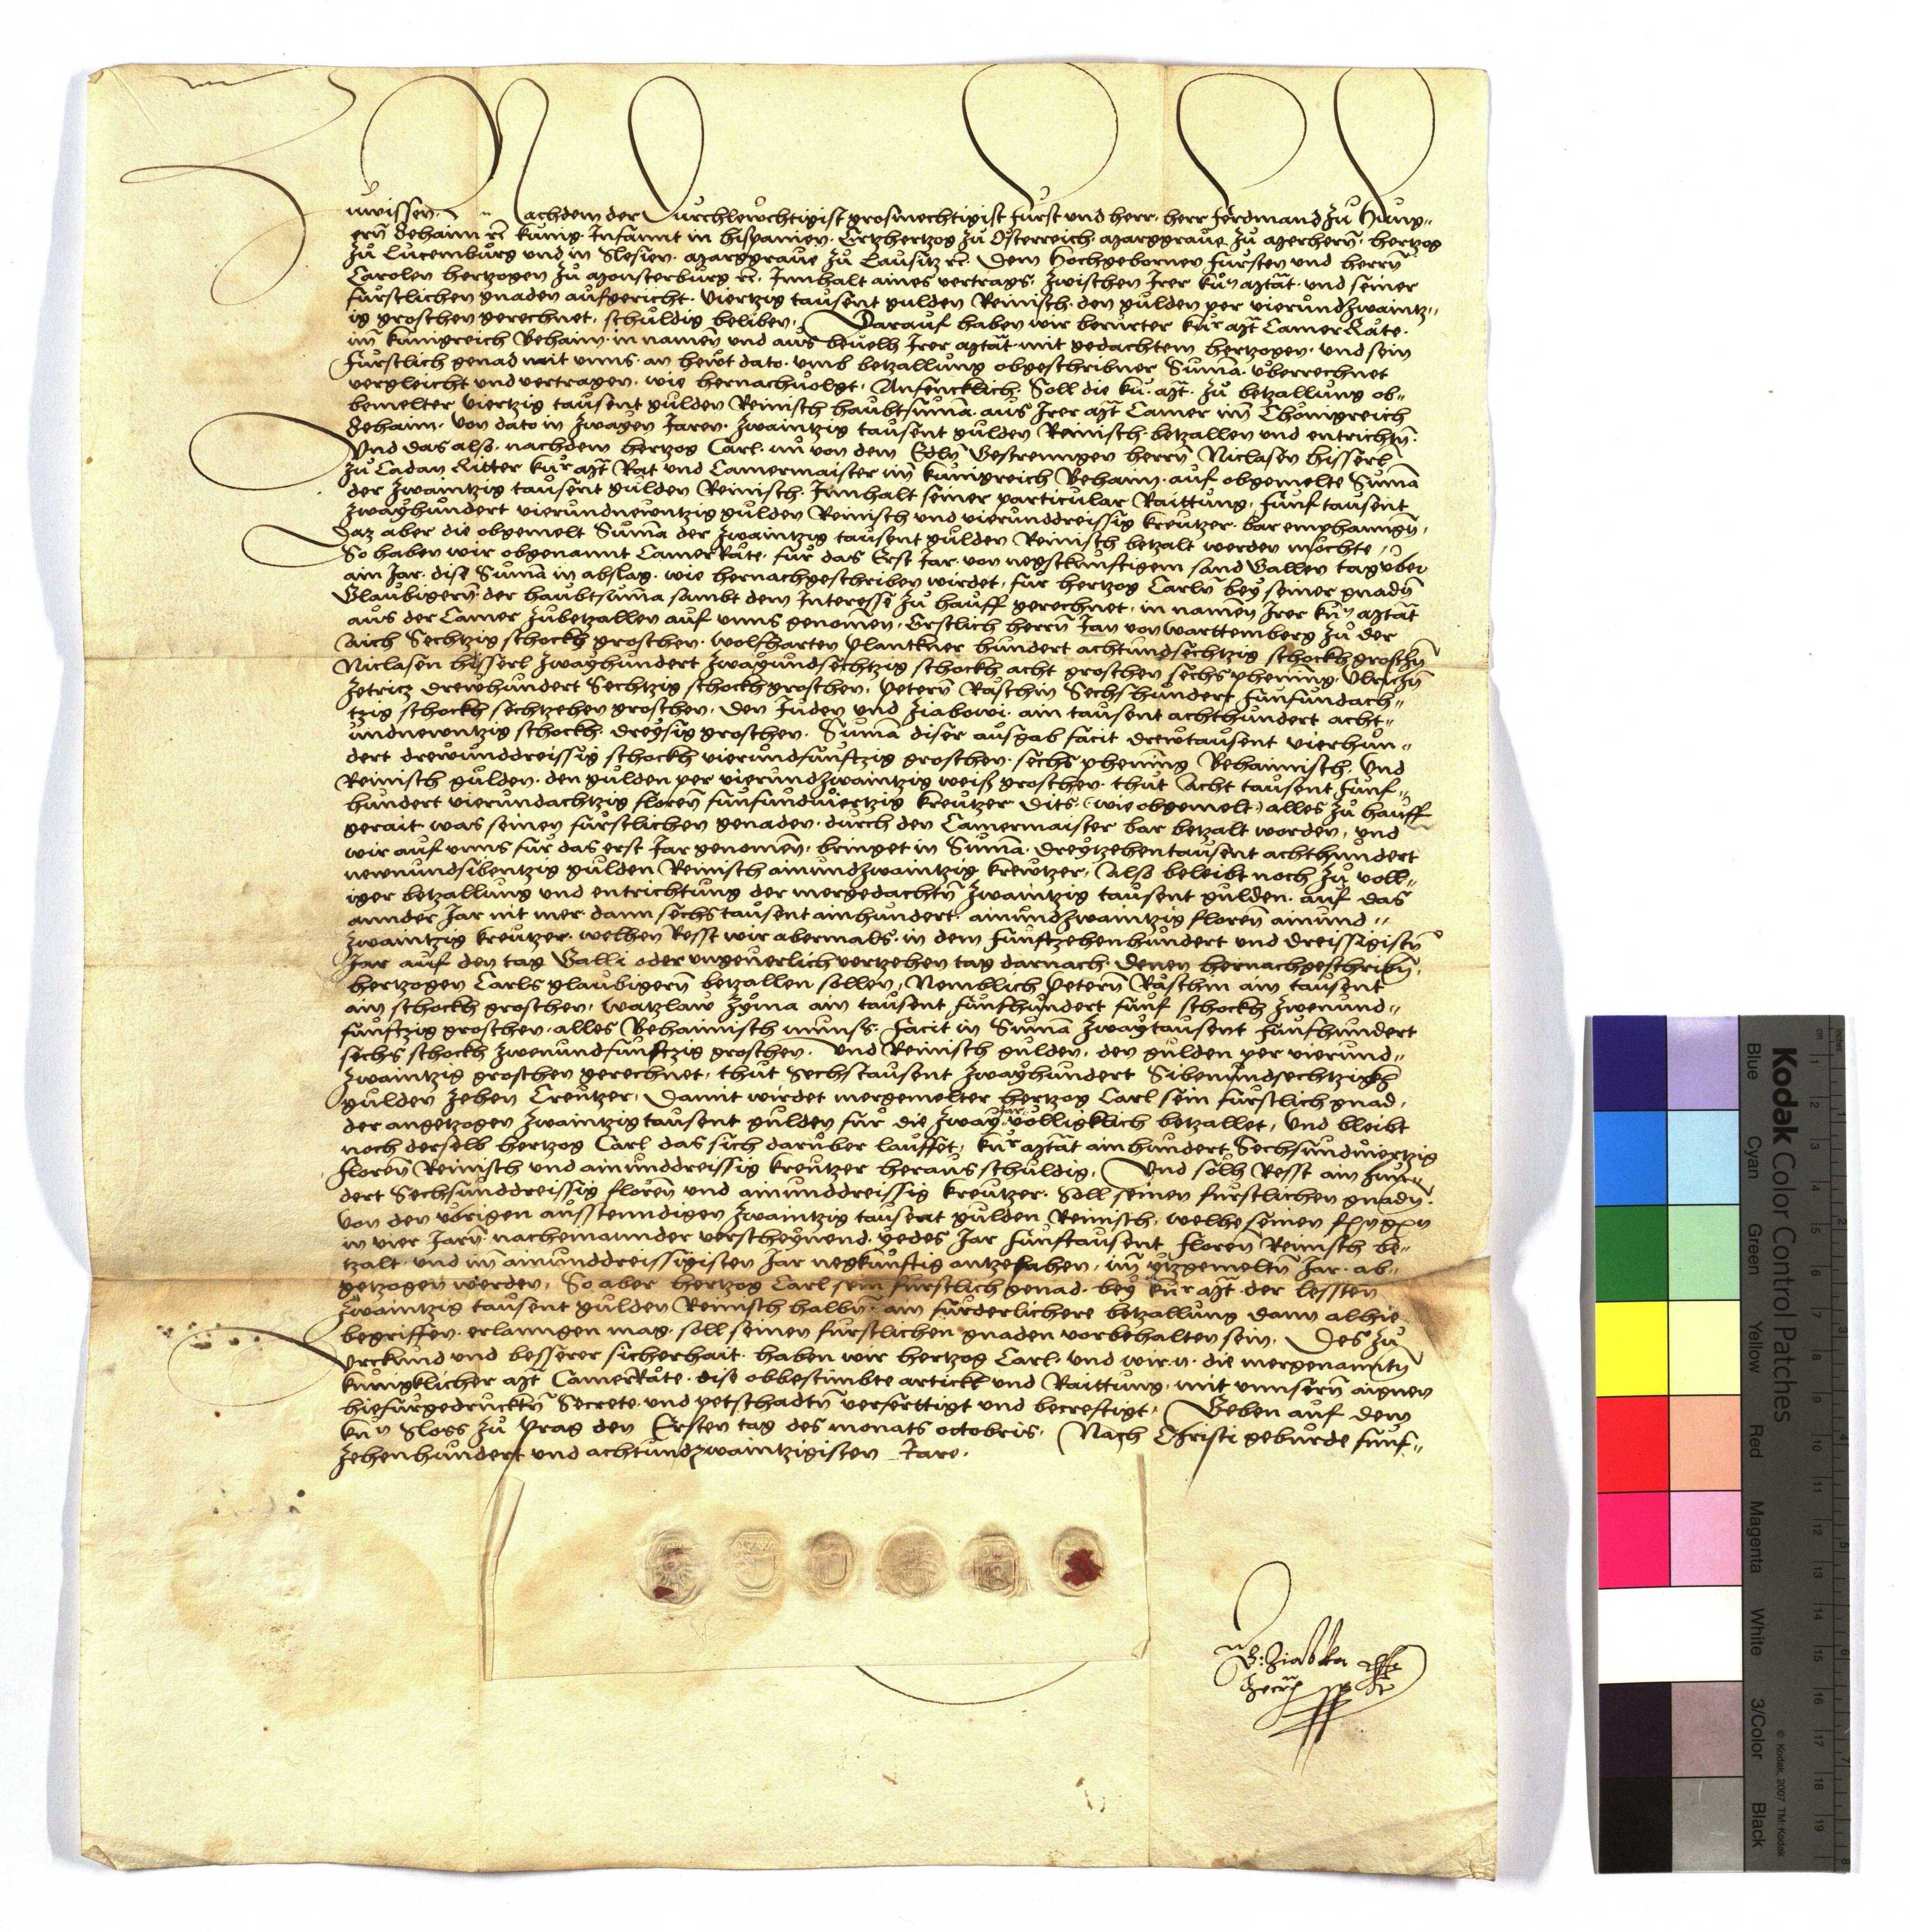 Zuwissen. Nachdem der Durchleuchtigist grosmechtigist Furst und herr, herr Ferdinand zu Hung„
ern Behaim rc Kunig. Infannt in Hispanien. Ertzhertzog zu Osterreich. Marggrave zu Merhern. hertzog
zu Lucemburg und in Slesien. Marggrave zu Lausitz rc. Dem Hochgebornen Fursten und herrn
Carolen hertzogen zu Monsterburg rc. Innhalt aines vertrags. zwischen Irer Kun Mstat. und seiner
furstlichen gnaden aufgericht. viertzig tausent gulden Reinisch. den gulden per vierundzwaintz„
ig groschen gerechnet. schuldig beliben. Darauf haben wir berurter Kur Mst Camer Räte.
im Kunigreich Behaim. in namen und aus bevelh Irer Mstat. mit gedachtem hertzogen. und sein
furstlich genad mit unns. an hewt dato. umb betzallung obgeschribner Suma. uberrechnet
vergleicht und vertragen. wie hernachvolgt. Anfencklich Soll die Ku. Mst. zu betzallung ob„
bemelter viertzig tausent gulden Reinisch haubtsuma. aus Irer Mst Camer im Chonigreich
Behaim. von dato in zwayen Jaren. zwaintzig tausent gulden Reinisch. betzallen und entrichtn.
Und das also. nachdem hertzog Carl. nu von dem Edln Gestrenngen herrn Niclasen Hisserl
zu Cadan Ritter Kur Mst Rat und Camermaister im Kunigreich Behaim. auf obgemelte Suma
der zwaintzig tausent gulden Reinisch. Innhalt seiner particular Raittung. Funf tausent
zwayhundert vierundnewntzig gulden Reinisch und vierunddreissig kreutzer. bar emphanngn.
Daz aber die obgemelt Suma der zwaintzig tausent gulden Reinisch betzalt werden mochte„
So haben wir obgenannt Camer Räte. fur das Erst Jar. von negstkunftigem sand Gallen tag uber
ain Jar. dise Suma in abslag. wie hernachgeschriben wirdet. fur hertzog Carln bey seiner gnadn
Glaubigern. der haubtsuma sambt dem Interesse zu hauff gerechnet. in namen Irer Kun Mstat
aus der Camer zubetzallen auf unns genomen. Erstlich herrn Jan von Warttemberg zu der
Aich Sechtzig schockh groschen. Wolfharten Planckner hundert achtundsechtzig schockh groschn
Niclasen Hisserl zwayhundert zwayundsechtzig schockh acht groschen sechs phening. Ulrichn
Zetricz drewhundert Sechtzig schockh groschen. Petern Raschin Sechshundert funfundach„
tzig schockh sechtzehen groschen. Den Juden und Ziabowi. ain tausent achthundert acht„
undnewntzig schockh. dreysig groschen. Suma diser ausgab facit drewtausent vierhun„
dert drewunddreissig schockh vierundfunftzig groschen. sechs phening Behaimisch. Und
Reinisch gulden. den gulden per vierundzwaintzig weiss groschen. thut Acht tausent Funf„
hundert vierundachtzig floren funfundviertzig kreutzer. Dits (wie obgemelt) alles zu hauff
gerait. was seinen furstlichen genaden. durch den Camermaister bar betzalt worden, und
wir auf unns fur das erst Jar genomen. bringet in Suma. dreytzehentausent achthundert
newnundsibentzig gulden Reinisch ainundzwaintzig krewtzer. Also beleibt noch zu voll„
iger betzallung und entrichtung der mergedachtn zwaintzig tausent gulden. auf das
annder Jar nit mer. dann sechstausent ainhundert. ainundzwaintzig floren ainund„
zwaintzig kreutzer. welhen Resst wir abermals. in dem funftzehenhundert und dreissigistn
Jar auf den tag Galli oder ungeverlich vertzehen tag darnach. denen hernachgeschribn.
hertzogen Carls glaubigern betzallen sollen. Nemblich Petern Raschin ain tausent
ain schockh groschen. Watzlaw Zyma ain tausent funfhundert funf schockh zwenund„
funftzig groschen. alles Behaimisch munss. facit in Suma zwaytausent funfhundert
sechs schockh zwenundfunftzig groschen. Und Reinisch gulden. den gulden per vierund„
zwaintzig groschen gerechnet. thut Sechstausent zwayhundert Sibenundsechtzig
gulden zehen Creutzer. Damit wirdet mergemelter hertzog Carl sein furstlich gnad.
der angetzogen zwaintzigtausent gulden fur die zway Jar volligklich betzallet. Und bleibt
noch derselb hertzog Carl das sich daruber lauffet. Kur Mstat ainhundert Sechsundviertzig
floren Reinisch und ainunddreissig kreutzer heraus schuldig. Und solh Resst ain hun„
dert Sechsunddreissig floren und ainunddreissig kreutzer. Soll seinen furstlichen gnadn.
von den ubrigen ausstenndigen zwaintzig tausent gulden Reinisch. welhe seinen f gn
in vier Jarn nacheinannder verscheynend. yedes Jar funftausent floren Reinisch be„
tzalt. und im ainunddreissigisten Jar negkunftig antzefahen. im yzgemeltn Jar. ab„
getzogen werden. So aber hertzog Carl sein furstlich genad. bey Kur Mst. der lessten
zwaintzig tausent gulden Reinisch halbn. ain furderlichere betzallung dann alhie
begriffen. erlanngen mag. soll seinen furstlichen gnaden vorbehalten sein. Des zu
Urckund und besserer sicherhait. haben wir hertzog Carl. und wir. n. die mergenanntn
kunigklicher Mst Camer Räte. dise obbestimbte artickl und Raittung. mit unnsern aignen
hiefurgedrucktn Secrete. und petschadtn verferttigt und becreftigt. Geben auf dem
Kun Sloss zu Prag den Ersten tag des monats octobris. Nach Christi geburde funf„
zehenhundert und achtundzwaintzigisten Jare.